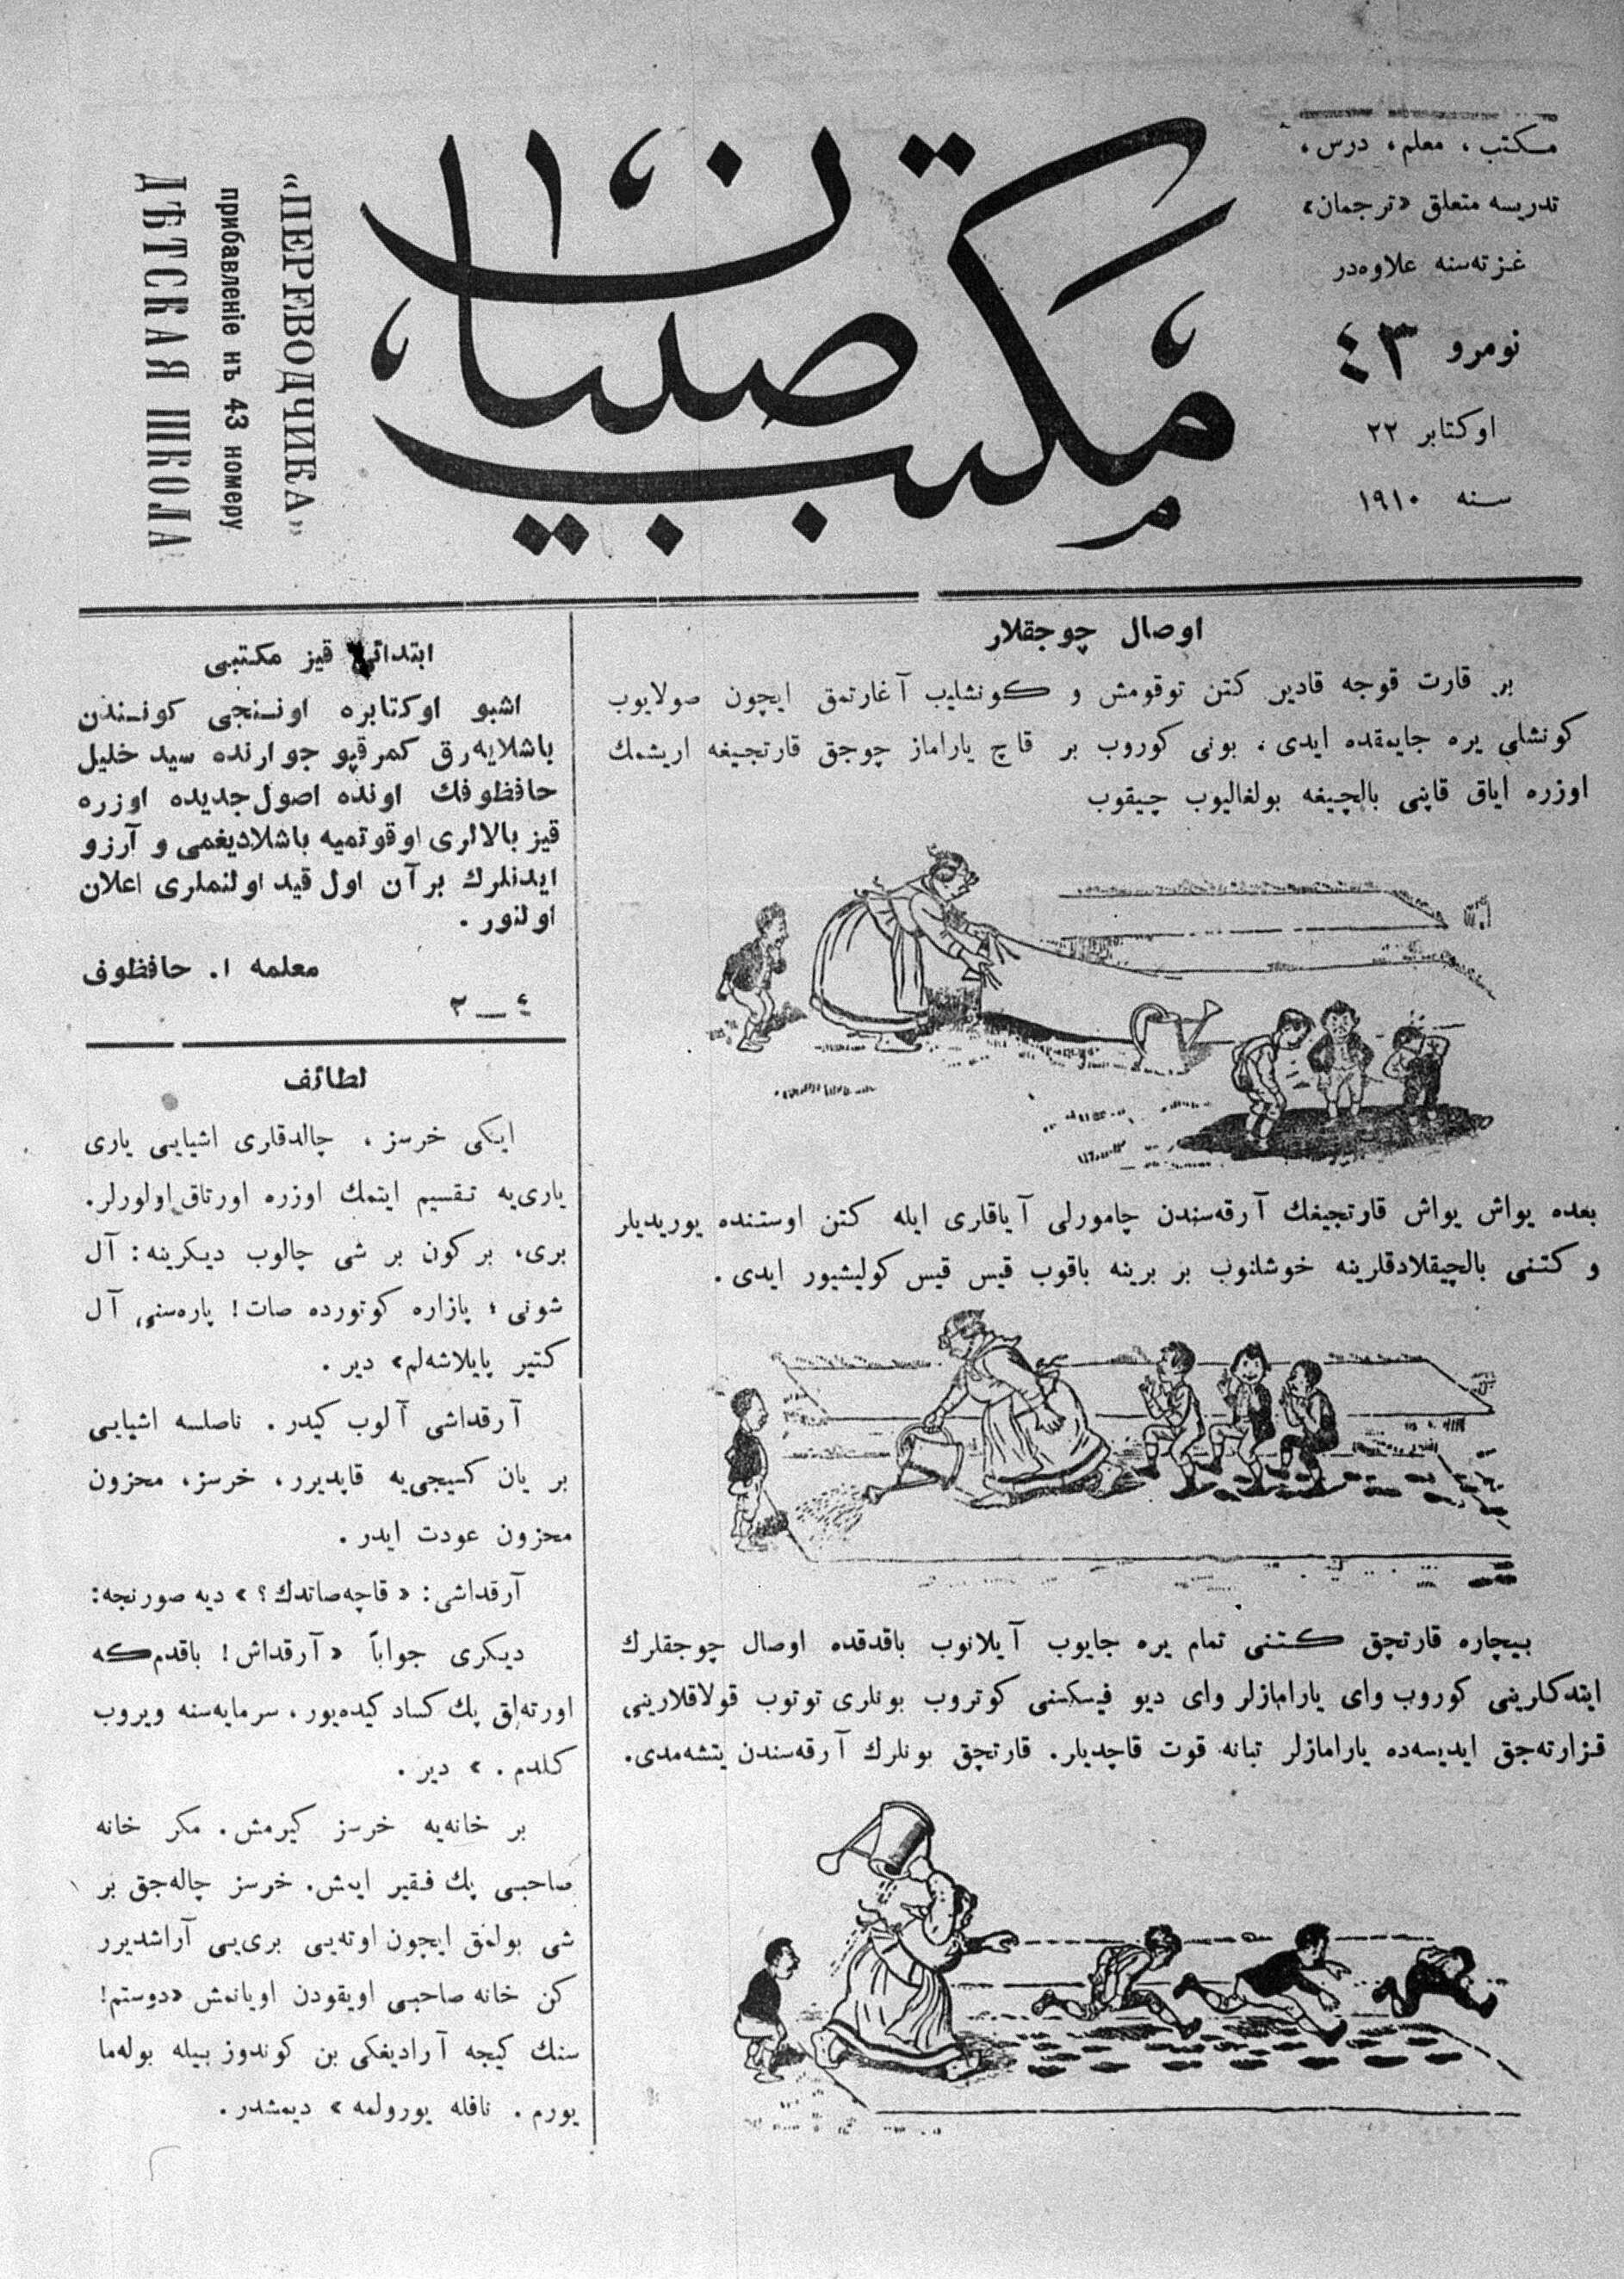 مكتب، معلم، درس،
تدريسه متعلق «ترجمان»
غزته‌سنه علاوه‌در
نومرو ٤٣
اوكتابر ٢٢
سنه ١٩١٠
مكتب صبيان
"ПЕРЕВОДЧИКА"
прибавленіе нъ 43 номеру
ДѢТСКАЯ ШКОЛА
اوصال چوجقلار
بر قارت قوجه قادين كتن توقومش و كونشليب آغارتمق ايچون صولايوب
كونشلى يره جايمقده ايدى. بونى كوروب بر قاچ ياراماز چوجق قارتجيغه اريشمك
اوزره اياق قاپنى بالچيغه بولغاليوب چيقوب
بعده يواش يواش قارتجيغك آرقه‌سندن چامورلى آياقلرى ايله كتن اوستنده يوريديلر
و كتنى بالچيقلادقلرينه خوشلنوب بر برينه باقوب قيس قيس كوليشيور ايدى.
بيچاره قارتچق كتنى تمام يره جايوب آيلانوب باقدقده اوصال چوجقلرك
ايتدكلرينى كوروب واى يارامازلر واى ديو فيسكسنى كوتروب بونلرى توتوب قولاقلارينى
قزارته‌جق ايديسه‌ده يارامازلر تبانه قوت قاچديلر. قارتچق بونلرك آرقه‌سندن يتشه‌مدى.
ابتدائى قيز مكتبى
اشبو اوكتابره اوننجى كونندن
باشلايه‌رق كمرقپو جوارنده سيد خليل
حافظوفك اونده اصول جديده اوزره
قيز بالالرى اوقوتميه باشلاديغمى و آرزو
ايدنلرك بر آن اول قيد اولنملرى اعلان
اولنور.
معلمه ا. حافظوف
٤ — ٢
لطائف
ايكى خرسز، چالدقلرى اشيايى يارى
يارى‌يه تقسيم ايتمك اوزره اورتاق اولورلر.
برى، بر كون بر شى چالوب ديكرينه: آل
شونى؛ پازاره كوتورده صات! پاره‌سنى آل
كتير پايلاشه‌لم» دير.
آرقداشى آلوب كيدر. ناصلسه اشيايى
بر يان كسيجى‌يه قاپديرر، خرسز، محزون
محزون عودت ايدر.
آرقداشى: «قاچه صاتدك؟» ديه صورنجه:
ديكرى جواباً «آرقداش! باقدم كه
اورته‌لق پك كساد كيده‌يور، سرمايه‌سنه ويروب
كلدم.» دير.
بر خانه‌يه خرسز كيرمش. مكر خانه
صاحبى پك فقير ايمش. خرسز چاله‌جق بر
شى بولمق ايچون اوته‌يى برى‌يى آراشديرر
كن خانه صاحبى اويقودن اويانمش «دوستم!
سنك كيجه آراديغكى بن كوندوز بيله بوله‌ما
يورم. نافله يورولمه» ديمشدر.